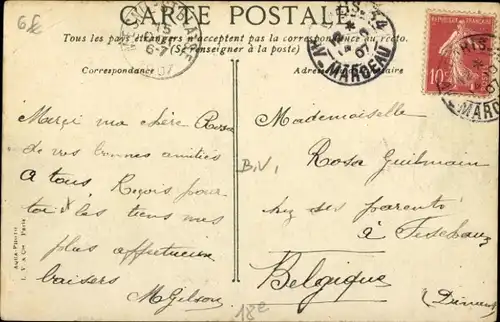 6f
CARTE POSTALE
Tous les pays étrangers n'acceptent pas la correspondance au recto.
(Se renseigner à la poste)
Correspondance
Adresse du destinataire
6-7
07
44
07
AV. MARCEAU
10c
MARC
Marçi ma chère Rosa
de vos bonnes amitiés
A tous, Reçois pour
toi & les tiens mes
plus affectueux
baisers
MGilson
B.V.
Mademoiselle
Rosa Guilmain
chez ses parents
à
Belgique
(Dinant)
18e
Aqua-Photo
L. V. & Cie Paris